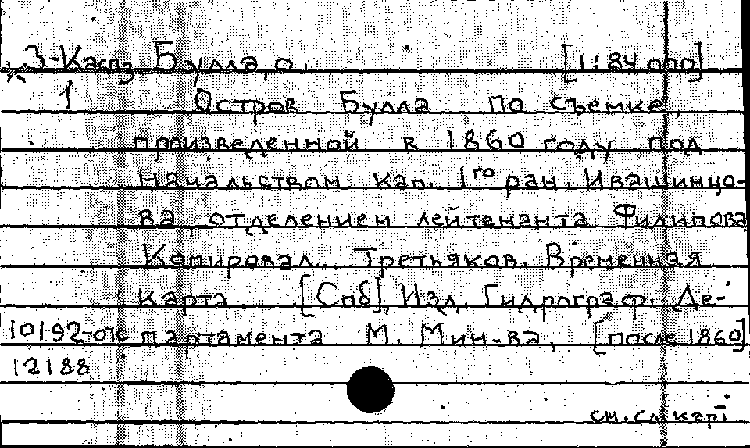 3-Касп Булла, о. [1:84 000]
1 Остров Булла по съемке,
произведенной в 1860 году под
начальством кап. 1го ран. Ивашинцо-
ва отделением лейтенанта Филипова
Копировал Третьяков. Временная
карта [Спб], Изд. Гидрограф. Де-
10192-оте партамента М. Мин-ва, [после 1860]
12188
см. сл. карт